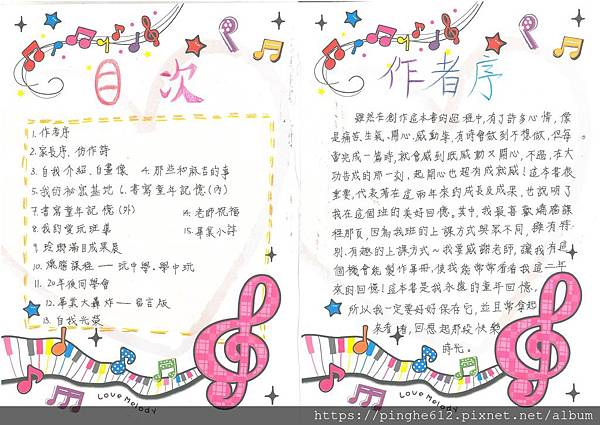 目次
1. 作者序
2. 家長序、仿作詩
3. 自我介紹、自畫像 4. 那些和麻吉的事
5. 我的秘密基地 6. 書寫童年記憶(內)
7. 書寫童年記憶(外) 14. 老師祝福
8. 我的愛玩班羣 15. 畢業小詩
9. 玲瑯滿目成果展
10. 燒腦課程——玩中學,學中玩
11. 20年後同學會
12. 畢業大轟炸——留言版
13. 自我光榮
Love Melody
作者序
雖然在創作這本書的過程中,有了許多心情,像
是痛苦、生氣、開心、感動⋯等,有時會做到不想做,但每
當完成一篇時,就會感到既感動又開心,不過,在大
功告成的那一刻,超開心也超有成就感!這本書很
重要,代表著在這兩年來的成長及成果,也說明了
我在這個班的美好回憶。其中,我最喜歡燒腦課
程那頁,因為我班的上課方式與眾不同,擁有特
別、有趣的上課方式~我要感謝老師,讓我有這
個機會能製作畢冊,使我能常常看看我這二年
來的回憶!這本書是我永遠的童年回憶,
所以我一定要好好保存它,並且常拿起
來看看,回想起那段快樂
時光。
Love Melody
https://pinghe612.pixnet.net/album